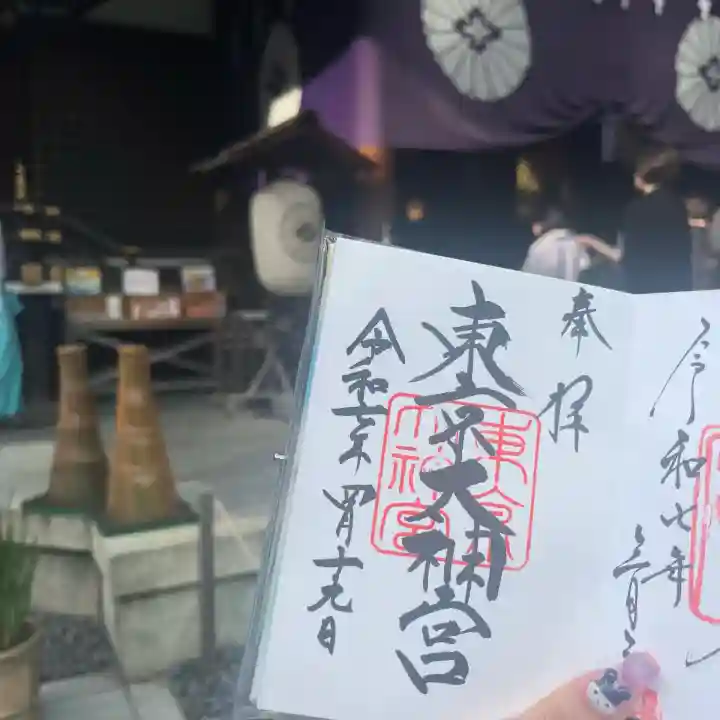 奉拝
東京大神宮
令和七年四月十九日
東京大神宮
令和七年